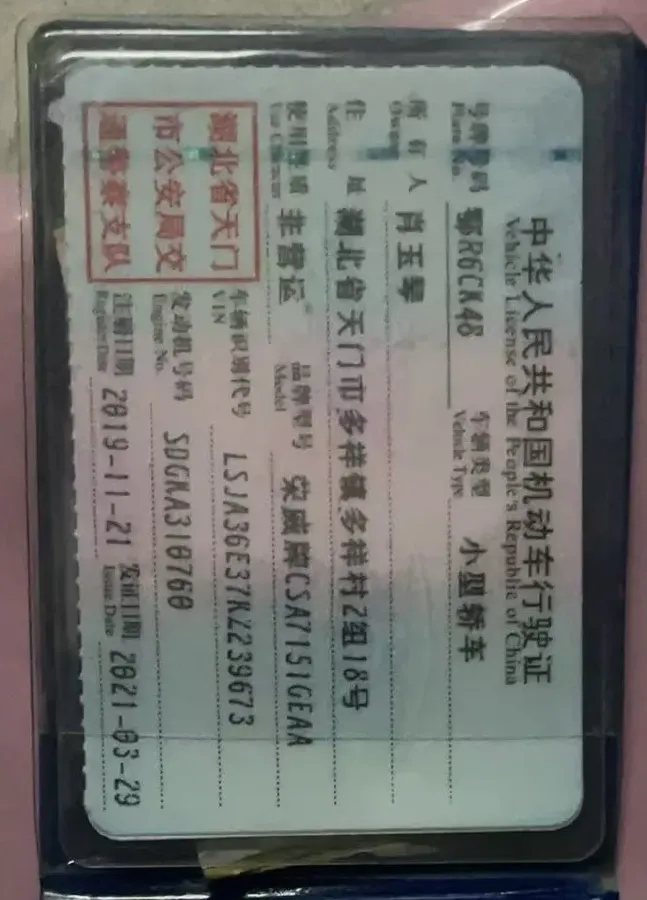 中华人民共和国机动车行驶证
Vehicle License of the People's Republic of China
号牌号码 鄂R6CK48 车辆类型 小型轿车
Plate No. Vehicle Type
所有人 肖玉琴
Owner
住址 湖北省天门市多祥镇多祥村2组18号
Address
使用性质 非营运 品牌型号 荣威牌CSA7151GEAA
Use Character Model
湖北省天门
市公安局交
通警察支队
车辆识别代号 LSJA36E37KZ239673
VIN
发动机号码 SDGKA310760
Engine No.
注册日期 2019-11-21 发证日期 2021-03-29
Register Date Issue Date